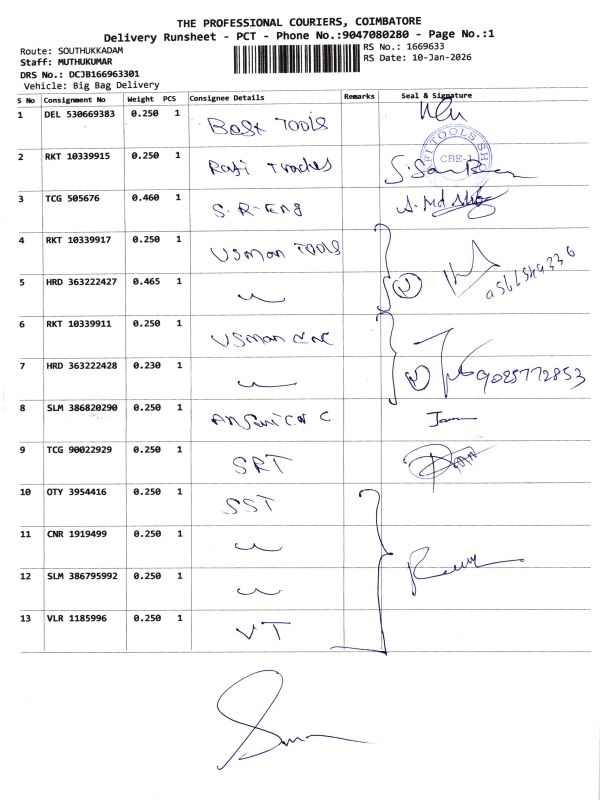 THE PROFESSIONAL COURIERS, COIMBATORE
Delivery Runsheet - PCT - Phone No.:9047080280 - Page No.:1
Route: SOUTHUKKADAM
RS No.: 1669633
Staff: MUTHUKUMAR
RS Date: 10-Jan-2026
DRS No.: DCJB166963301
Vehicle: Big Bag Delivery
S No Consignment No Weight PCS Consignee Details Remarks Seal & Signature
1 DEL 530669383 0.250 1 Best Tools
2 RKT 10339915 0.250 1 CBE-1
3 TCG 505676 0.460 1 S.R-Eng
4 RKT 10339917 0.250 1 Usman Tools
5 HRD 363222427 0.465 1 (2)
6 RKT 10339911 0.250 1 Usman CNC
7 HRD 363222428 0.230 1 (2) 9025772853
8 SLM 386820290 0.250 1
9 TCG 90022929 0.250 1 SRT
10 OTY 3954416 0.250 1 SST
11 CNR 1919499 0.250 1
12 SLM 386795992 0.250 1
13 VLR 1185996 0.250 1 VT